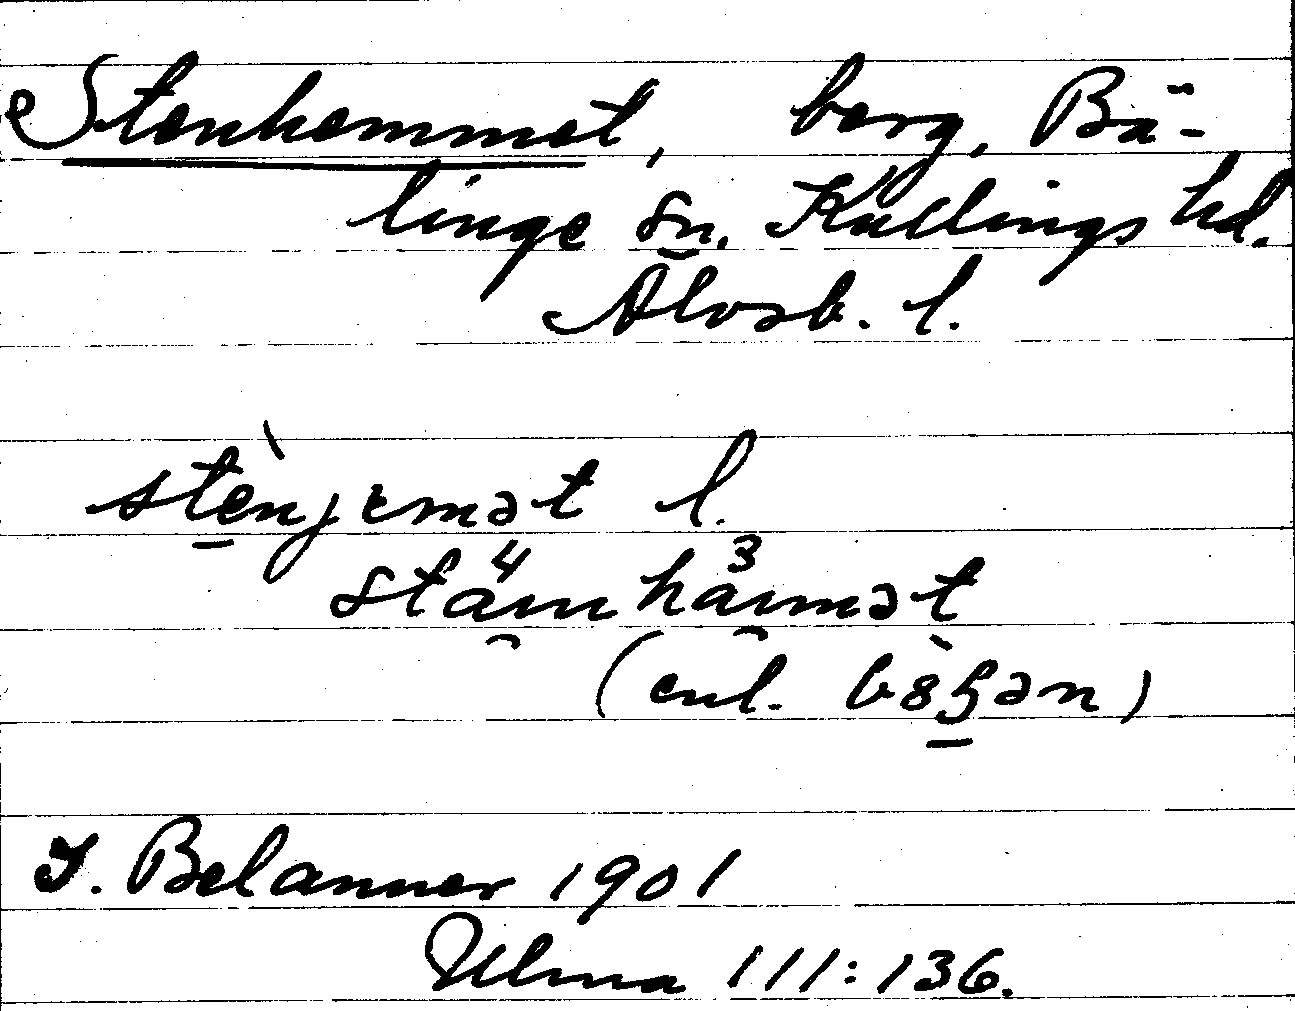 Stenhemmet, berg, Bä-
linge sn. Kullings hd.
Älvsb. l.
stènjemət l.
stä4mhå3mət
(enl. bö̀ʒən)
J. Belanner 1901
Ulma 111:136.